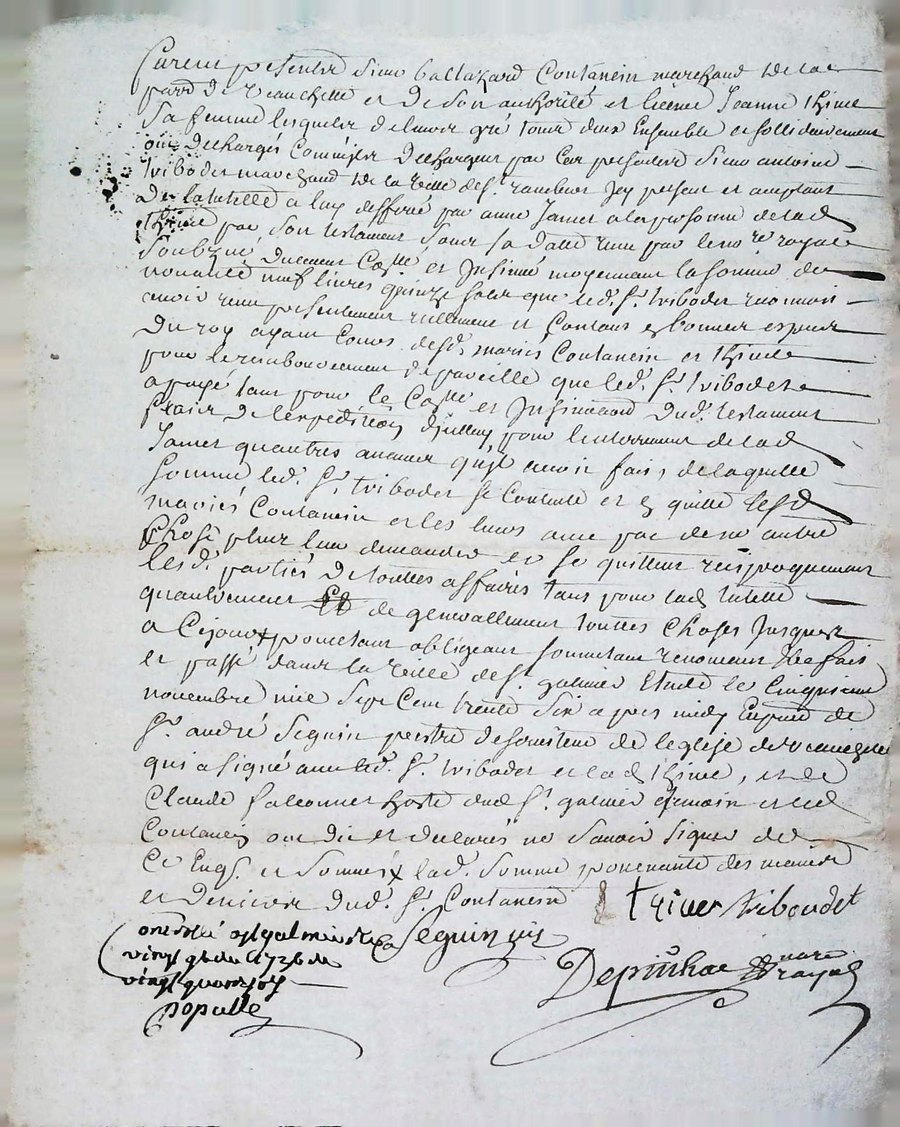 furent presents sieur baltazard Coutanein marchand de la
parr de veauchette et de son authorité et licence Jeanne thiver
sa femme lesquels de leur gré tous deux Ensemble et sollidairement
ont deschargés comme ils deschargent par Ces presentes sieur antoine
triboder marchand de la ville de st rambert Icy present et acceptant
de la tutelle a luy defferée par anne Jamet a la personne de lad
thiver par son testament sous sa datte receu par le no.re royal
soubzné duement Co.llé et Insinué moyennant la somme de
nonante neuf livres quinze sols que led. Sr. triboder
avoir receu presentement reellement et contant en bonnes especes
du roy ayant cours desd. mariés Coutanein et thiver
pour le remboursement de pareille que led. Sr. triboder
a payé tant pour le Co.lle et Insinuaon dud. testament
fraix de l'expedition d'icelluy pour l'enterrement de lad
Jamet quautres avances quil avoit fait, de laquelle
somme led. Sr. triboder se contente et en quitte lesd
mariés Coutanein et les leurs avec pac de ne autre
Chose plus leur demander et se quittent reciproquement
lesd. parties de touttes affaires tant pour lad tutelle
quautrement et generallement touttes choses Jusques
a Cejourd promettant obligeant soumettant renonceant &c fait
et passé dans la ville de st. galmier Etude le cinquieme
novembre mil sept cent trente six apres midy En pnce de
Sr. andré Seguin prestre desserviteur de l'eglise de veauchette
qui a signé avec led. Sr. triboder et lad thiver, et de
Claude falconnet hoste dud st. galmier temoin et led
Coutanein ont dit et declarés ne savoir signer de
Ce Enqs. et sommés lad. somme provenante des mains
et deniers dud. Sr. Coutanein
thiver triboudet
Seguin ptre
Controllé a st galmier le
vingt 9bre 1736
vingt quatre sols
populle
Depinhac nore royal